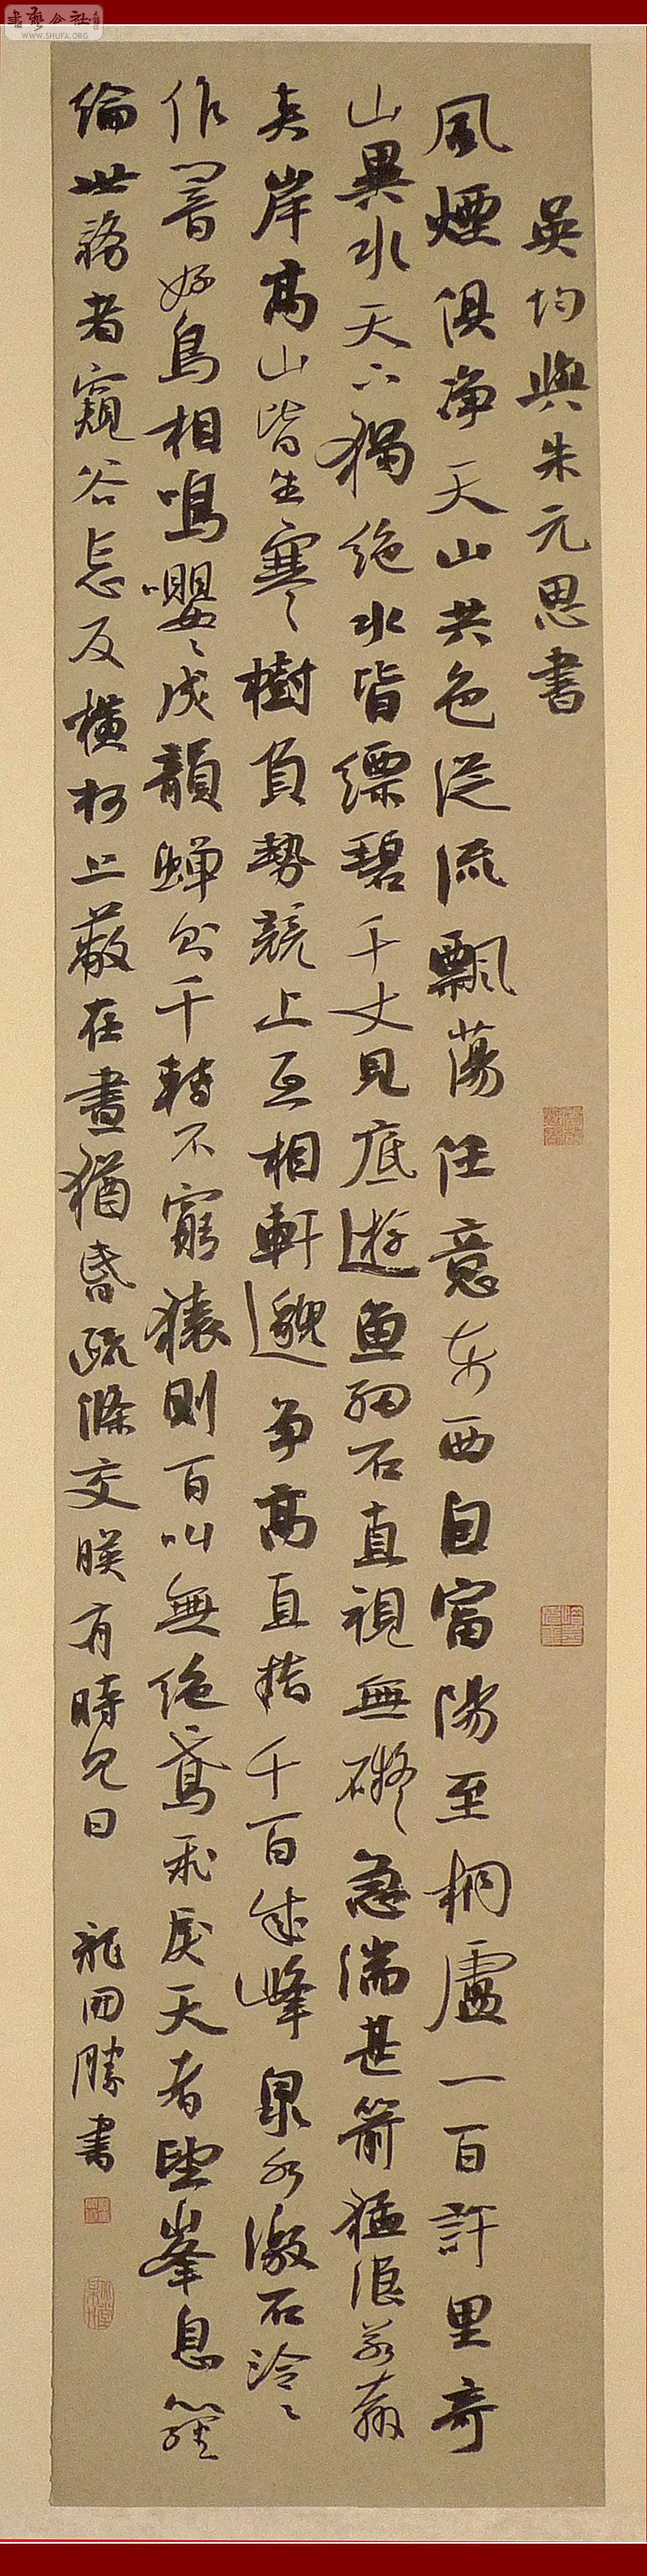 書藝公社
WWW.SHUFA.ORG
吳均與朱元思書
風煙俱淨天山共色從流飄蕩任意東西自富陽至桐廬一百許里奇
山異水天下獨絶水皆縹碧千丈見底遊魚細石直視無礙急湍甚箭猛浪若奔
夾岸高山皆生寒樹負勢競上互相軒邈爭高直指千百成峰泉水激石泠〻
作響好鳥相鳴嚶〻成韻蟬則千轉不窮猿則百叫無絶鳶飛戾天者望峯息心經
綸世務者窺谷忘反橫柯上蔽在晝猶昏疏條交映有時見日 龍開勝書